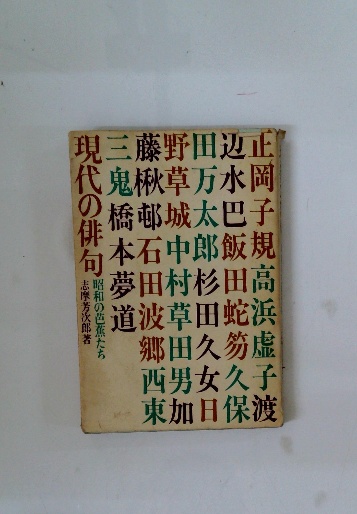 正岡子規高浜虚子渡
辺水巴飯田蛇笏久保
田万太郎杉田久女日
野草城中村草田男加
藤楸邨石田波郷西東
三鬼橋本夢道
現代の俳句
昭和の芭蕉たち
志摩芳次郎著